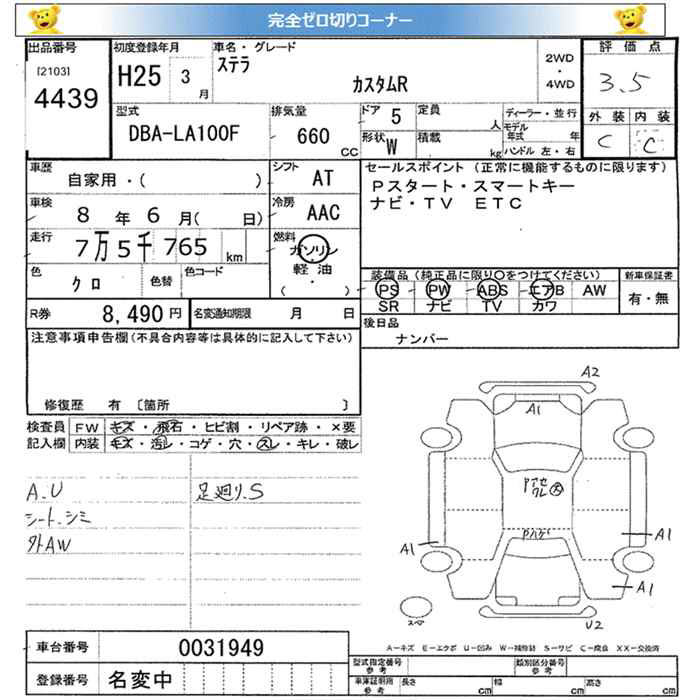 完全ゼロ切りコーナー
出品番号
[2103]
4439
初度登録年月
H25 3 月
車名・グレード
ステラ
カスタムR
2WD
・
4WD
評価点
3.5
外装 内装
C C
型式
DBA-LA100F
排気量
660 CC
ドア 5
定員 人
形状 W
積載 kg
ディーラー・並行
モデル年式 年
ハンドル 左・右
車歴
自家用・( )
シフト
AT
車検
8 年 6 月( 日)
冷房
AAC
走行
7万5千765 km
燃料
ガソリン
軽油
( ・ )
色
クロ
色替
色コード
セールスポイント(正常に機能するものに限ります)
Pスタート・スマートキー
ナビ・TV ETC
装備品(純正品に限り○をつけてください)
PS PW ABS エアB AW
SR ナビ TV カワ
新車保証書
有・無
R券 8,490 円
名変通知期限 月 日
後日品
ナンバー
注意事項申告欄(不具合内容等は具体的に記入して下さい)
修復歴 有 〔箇所 〕
検査員記入欄
FW キズ・飛石・ヒビ割・リペア跡・×要
内装 キズ・汚レ・コゲ・穴・スレ・キレ・破レ
A.U
シート.シミ
外AW
足廻り.S
A2
A1
Pハゲ
A1
A1
A1
U2
スペア
A-キズ E-エクボ U-凹み W-補修跡 S-サビ C-腐食 XX-交換済
車台番号 0031949
登録番号 名変中
型式指定番号 参考
類別区分番号 参考
車庫証明用 参考
長さ cm
幅 cm
高さ cm